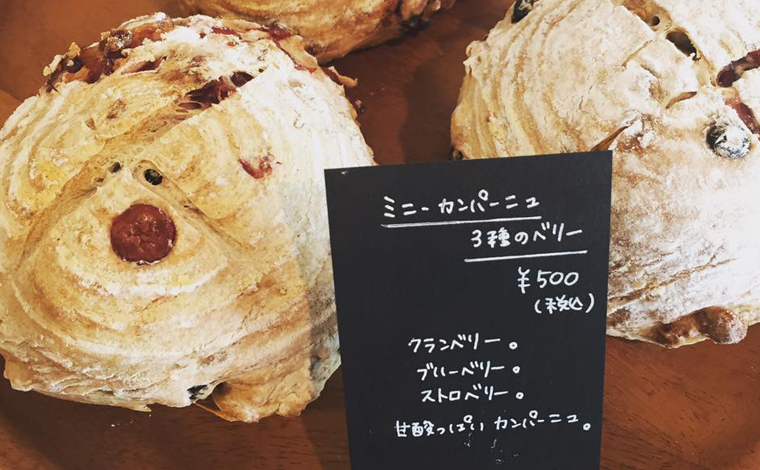 ミニーカンパーニュ
3種のベリー
¥500
(税込)
クランベリー。
ブルーベリー。
ストロベリー。
甘酸っぱい カンパーニュ。